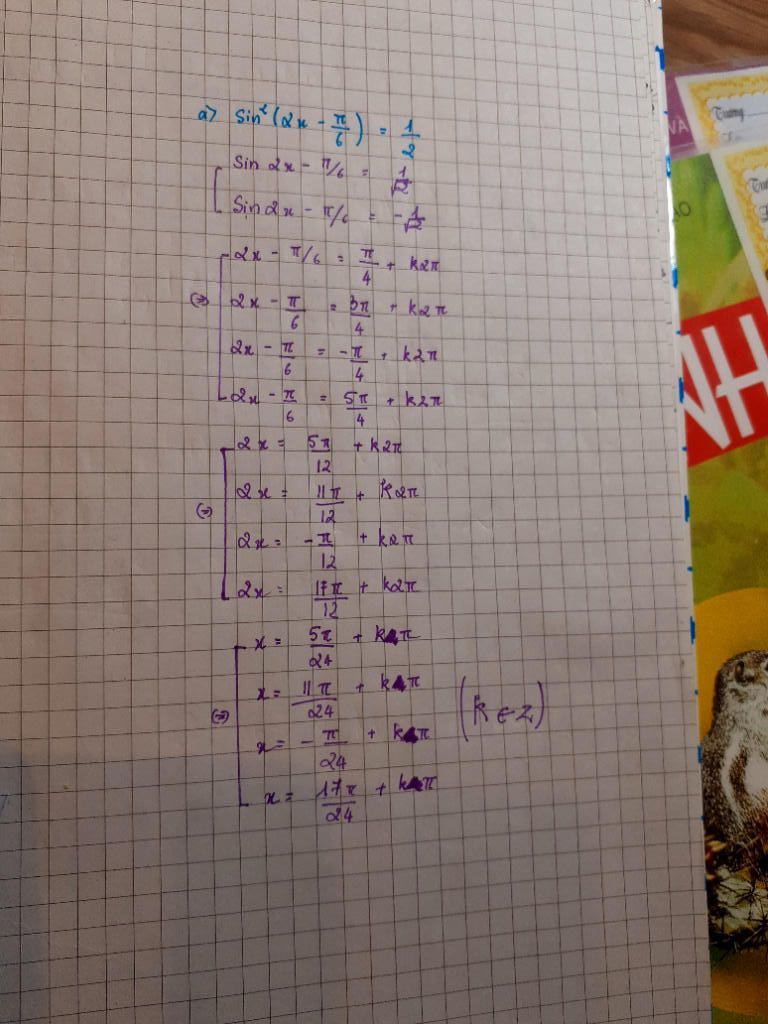 a) Sin²(2x - π/6) = 1/2
Sin 2x - π/6 = 1/√2
Sin 2x - π/6 = -1/√2
2x - π/6 = π/4 + k2π
(=) 2x - π/6 = 3π/4 + k2π
2x - π/6 = -π/4 + k2π
2x - π/6 = 5π/4 + k2π
2x = 5π/12 + k2π
2x = 11π/12 + k2π
(=) 2x = -π/12 + k2π
2x = 17π/12 + k2π
x = 5π/24 + kπ
x = 11π/24 + kπ
(=) x = -π/24 + kπ (k ∈ Z)
x = 17π/24 + kπ
Trường
NH